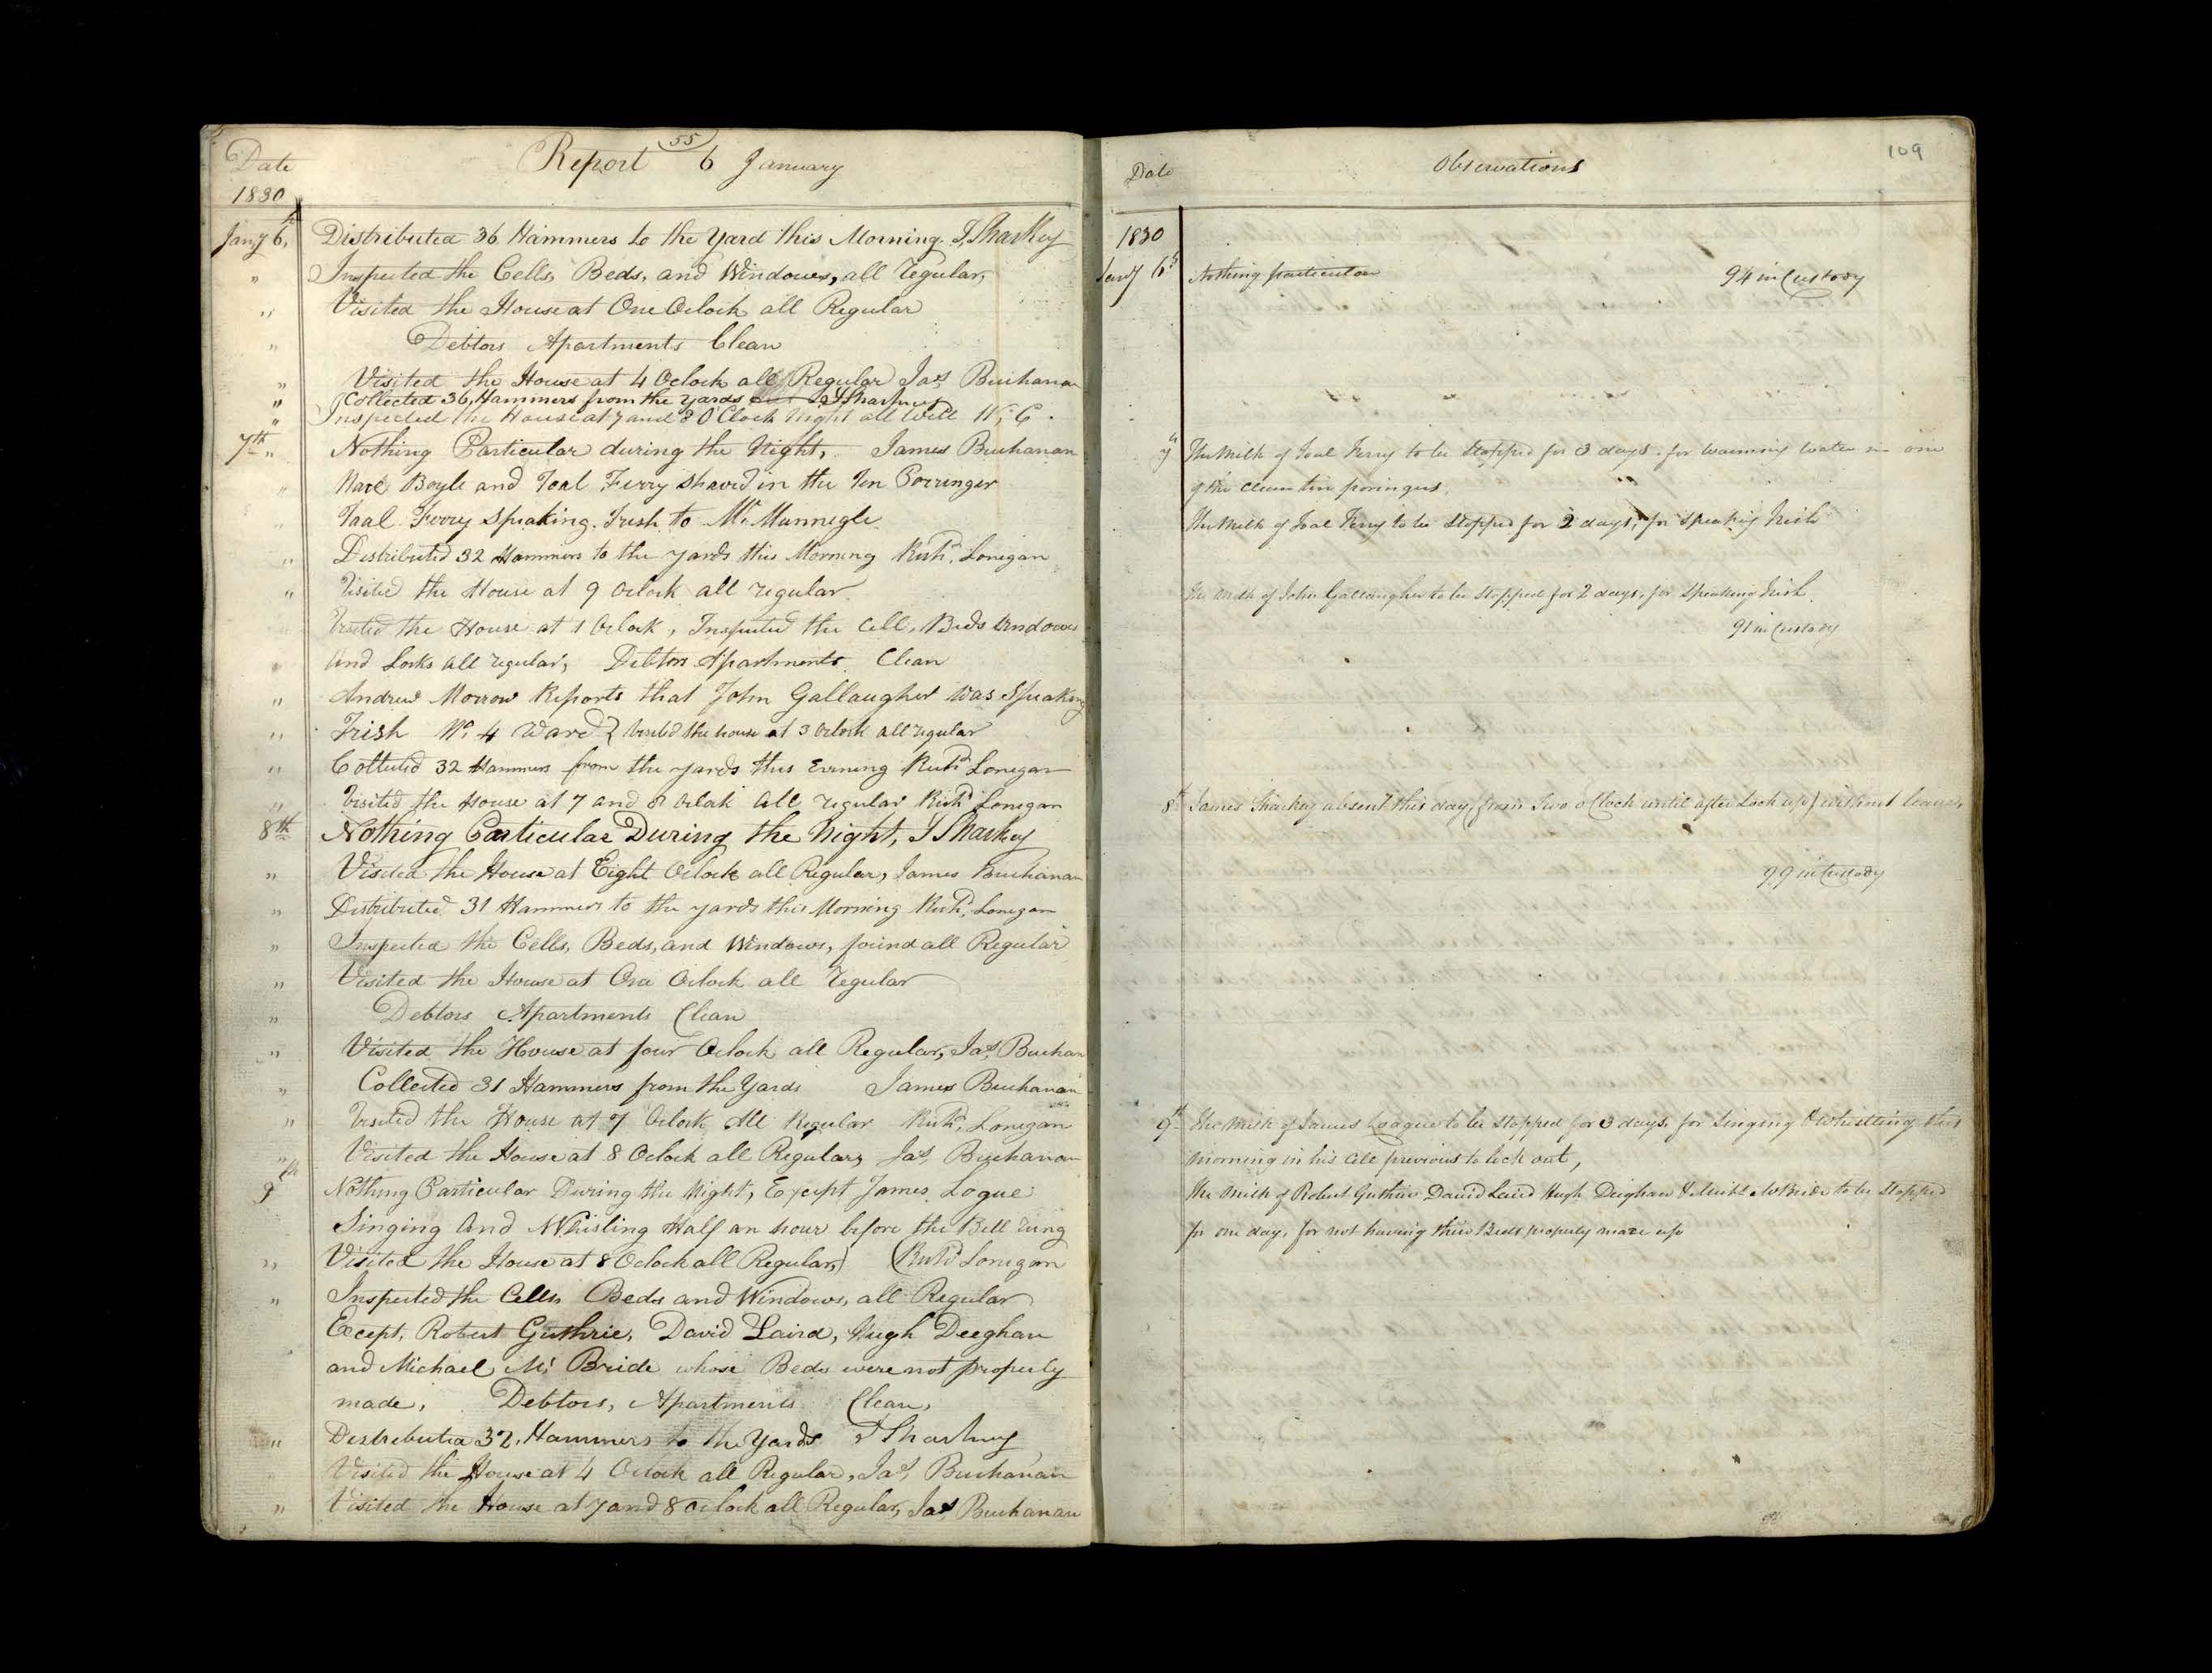 55
Date Report 6 January
1830
Jany 6th Distributed 36 Hammers to the Yard this Morning J, Sharkey
" Inspected the Cells, Beds, and Windows, all regular,
" Visited the House at One Oclock all Regular
" Debtors Apartments Clean
" Visited the House at 4 Oclock all Regular Jas Buchanan
" Collected 36, Hammers from the yards J Sharkey
" Inspected the House at 7 and 8 O'Clock Night all Well
7th " Nothing Particular during the Night, James Buchanan
" Boyle and Toal Ferry shaved in the Porringer
" Toal Ferry Speaking Irish to Mc Mannegle
" Distributed 32 Hammers to the yards this Morning Richd, Lonigan
" Visited the House at 9 Oclock all regular
" Visited the House at 1 Oclock, Inspected the Cell, Beds Windows
" And Locks all regular, Debtors Apartments Clean
" Andrew Morrow Reports that John Gallaugher was Speaking
" Irish No 4 Ward } Visited the house at 3 Oclock all regular
" Collected 32 Hammers from the yards this Evening Richd Lonigan
" Visited the House at 7 and 8 Oclock all regular Richd Lonigan
8th Nothing Particular During the Night, J Sharkey
" Visited the House at Eight Oclock all Regular, James Buchanan
" Distributed 31 Hammers to the yards this Morning Richd, Lonigan
" Inspected the Cells, Beds, and Windows, found all Regular
" Visited the House at One Oclock all regular
" Debtors Apartments Clean
" Visited the House at four Oclock all Regular, Jas, Buchan
" Collected 31 Hammers from the Yards James Buchanan
" Visited the House at 7 Oclock All Regular Richd, Lonigan
" Visited the House at 8 Oclock all Regular, Jas, Buchanan
9th Nothing Particular During the Night, Except James Logue
Singing and Whisling Half an hour before the Bell rung
" Visited the House at 8 Oclock all Regular,) (Richd Lonigan
" Inspected the Cells, Beds and Windows, all Regular
Except, Robert Guthrie, David Laird, Hugh Deeghan
and Michael Mc Bride whose Beds were not properly
made, Debtors, Apartments Clean,
" Destributed 32, Hammers to the Yards J Sharkey
Visited the House at 4 Oclock all Regular, Jas, Buchanan
" Visited the House at 7 and 8 oclock all Regular, Jas Buchanan
109
Date Observations
1830
Jany 6th Nothing particular 94 in Custody
7 The Milk of Toal Ferry to be Stopped for 3 days. for warming water in one
of the clean tin poringers,
The Milk of Toal Ferry to be Stopped for 2 days, for Speaking Irish
The Milk of John Gallaugher to be Stopped for 2 days, for Speaking Irish
91 in Custody
8th James Sharkey absent this day (from Two o Clock until after Lock up) without leave,
99 in Custody
9th The Milk of James Loague to be Stopped for 3 days, for Singing & Whistling this
Morning in his Cell previous to lock out,
The Milk of Robert Guthrie David Laird Hugh Deighan & Michl McBride to be Stopped
for one day, for not having their Beds properly made up